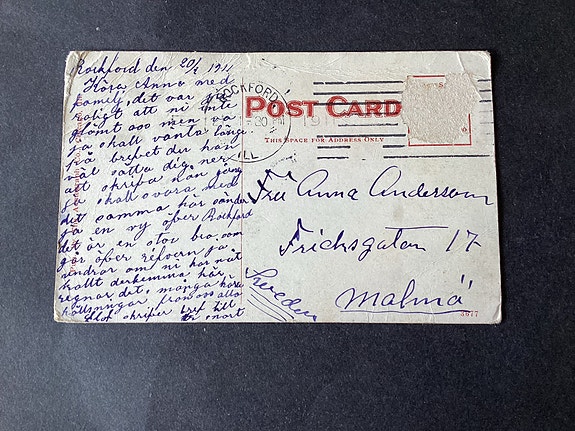 Rockford den 20/2 1911
Kära Anna med
familj, det var
roligt att ni inte
glömt oss men vi
få skall vänta länge
på brefvet du kan
väl sätta dig ner
att skrifva
så skall svara med
det samma här sänder
ja en vy öfver Rockford
det är en stor bro, som
går öfver refvern ja
undrar om ni har nåt
kallt derhemma här
regnar det, många kära
hälsningar från oss alla
skrifver bref till
snart
ROCKFORD
ILL
POST CARD
THIS SPACE FOR ADDRESS ONLY
Fru Anna Andersson
Fricksgatan 17
Malmö
Sweden